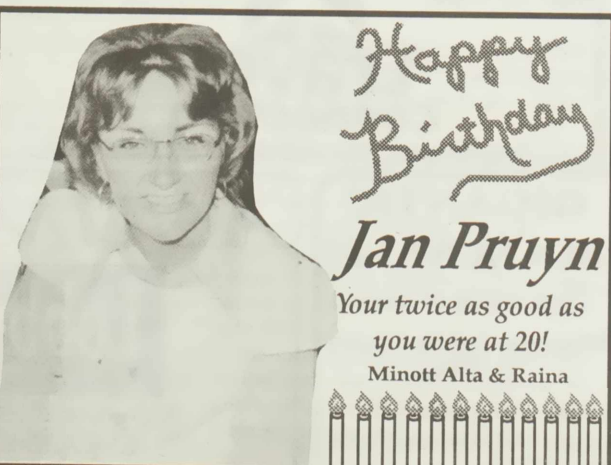 Happy
Birthday
Jan Pruyn
Your twice as good as
you were at 20!
Minott Alta & Raina